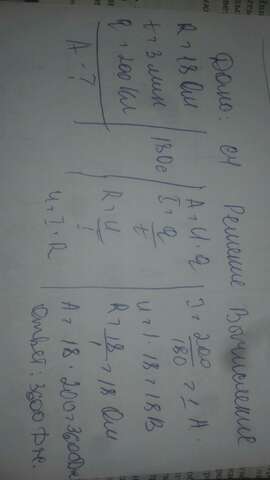 Дано: СИ Решение Вычисление
R = 18 Ом
t = 3 мин 180с
q = 200 Кл
A - ?
A = U · q
I = Q/t
R = U/I
U = I · R
I = 200/180 = 1 А.
U = 1 · 18 = 18 В
R = 18/1 = 18 Ом
A = 18 · 200 = 3600 Дж
Ответ: 3600 Дж.